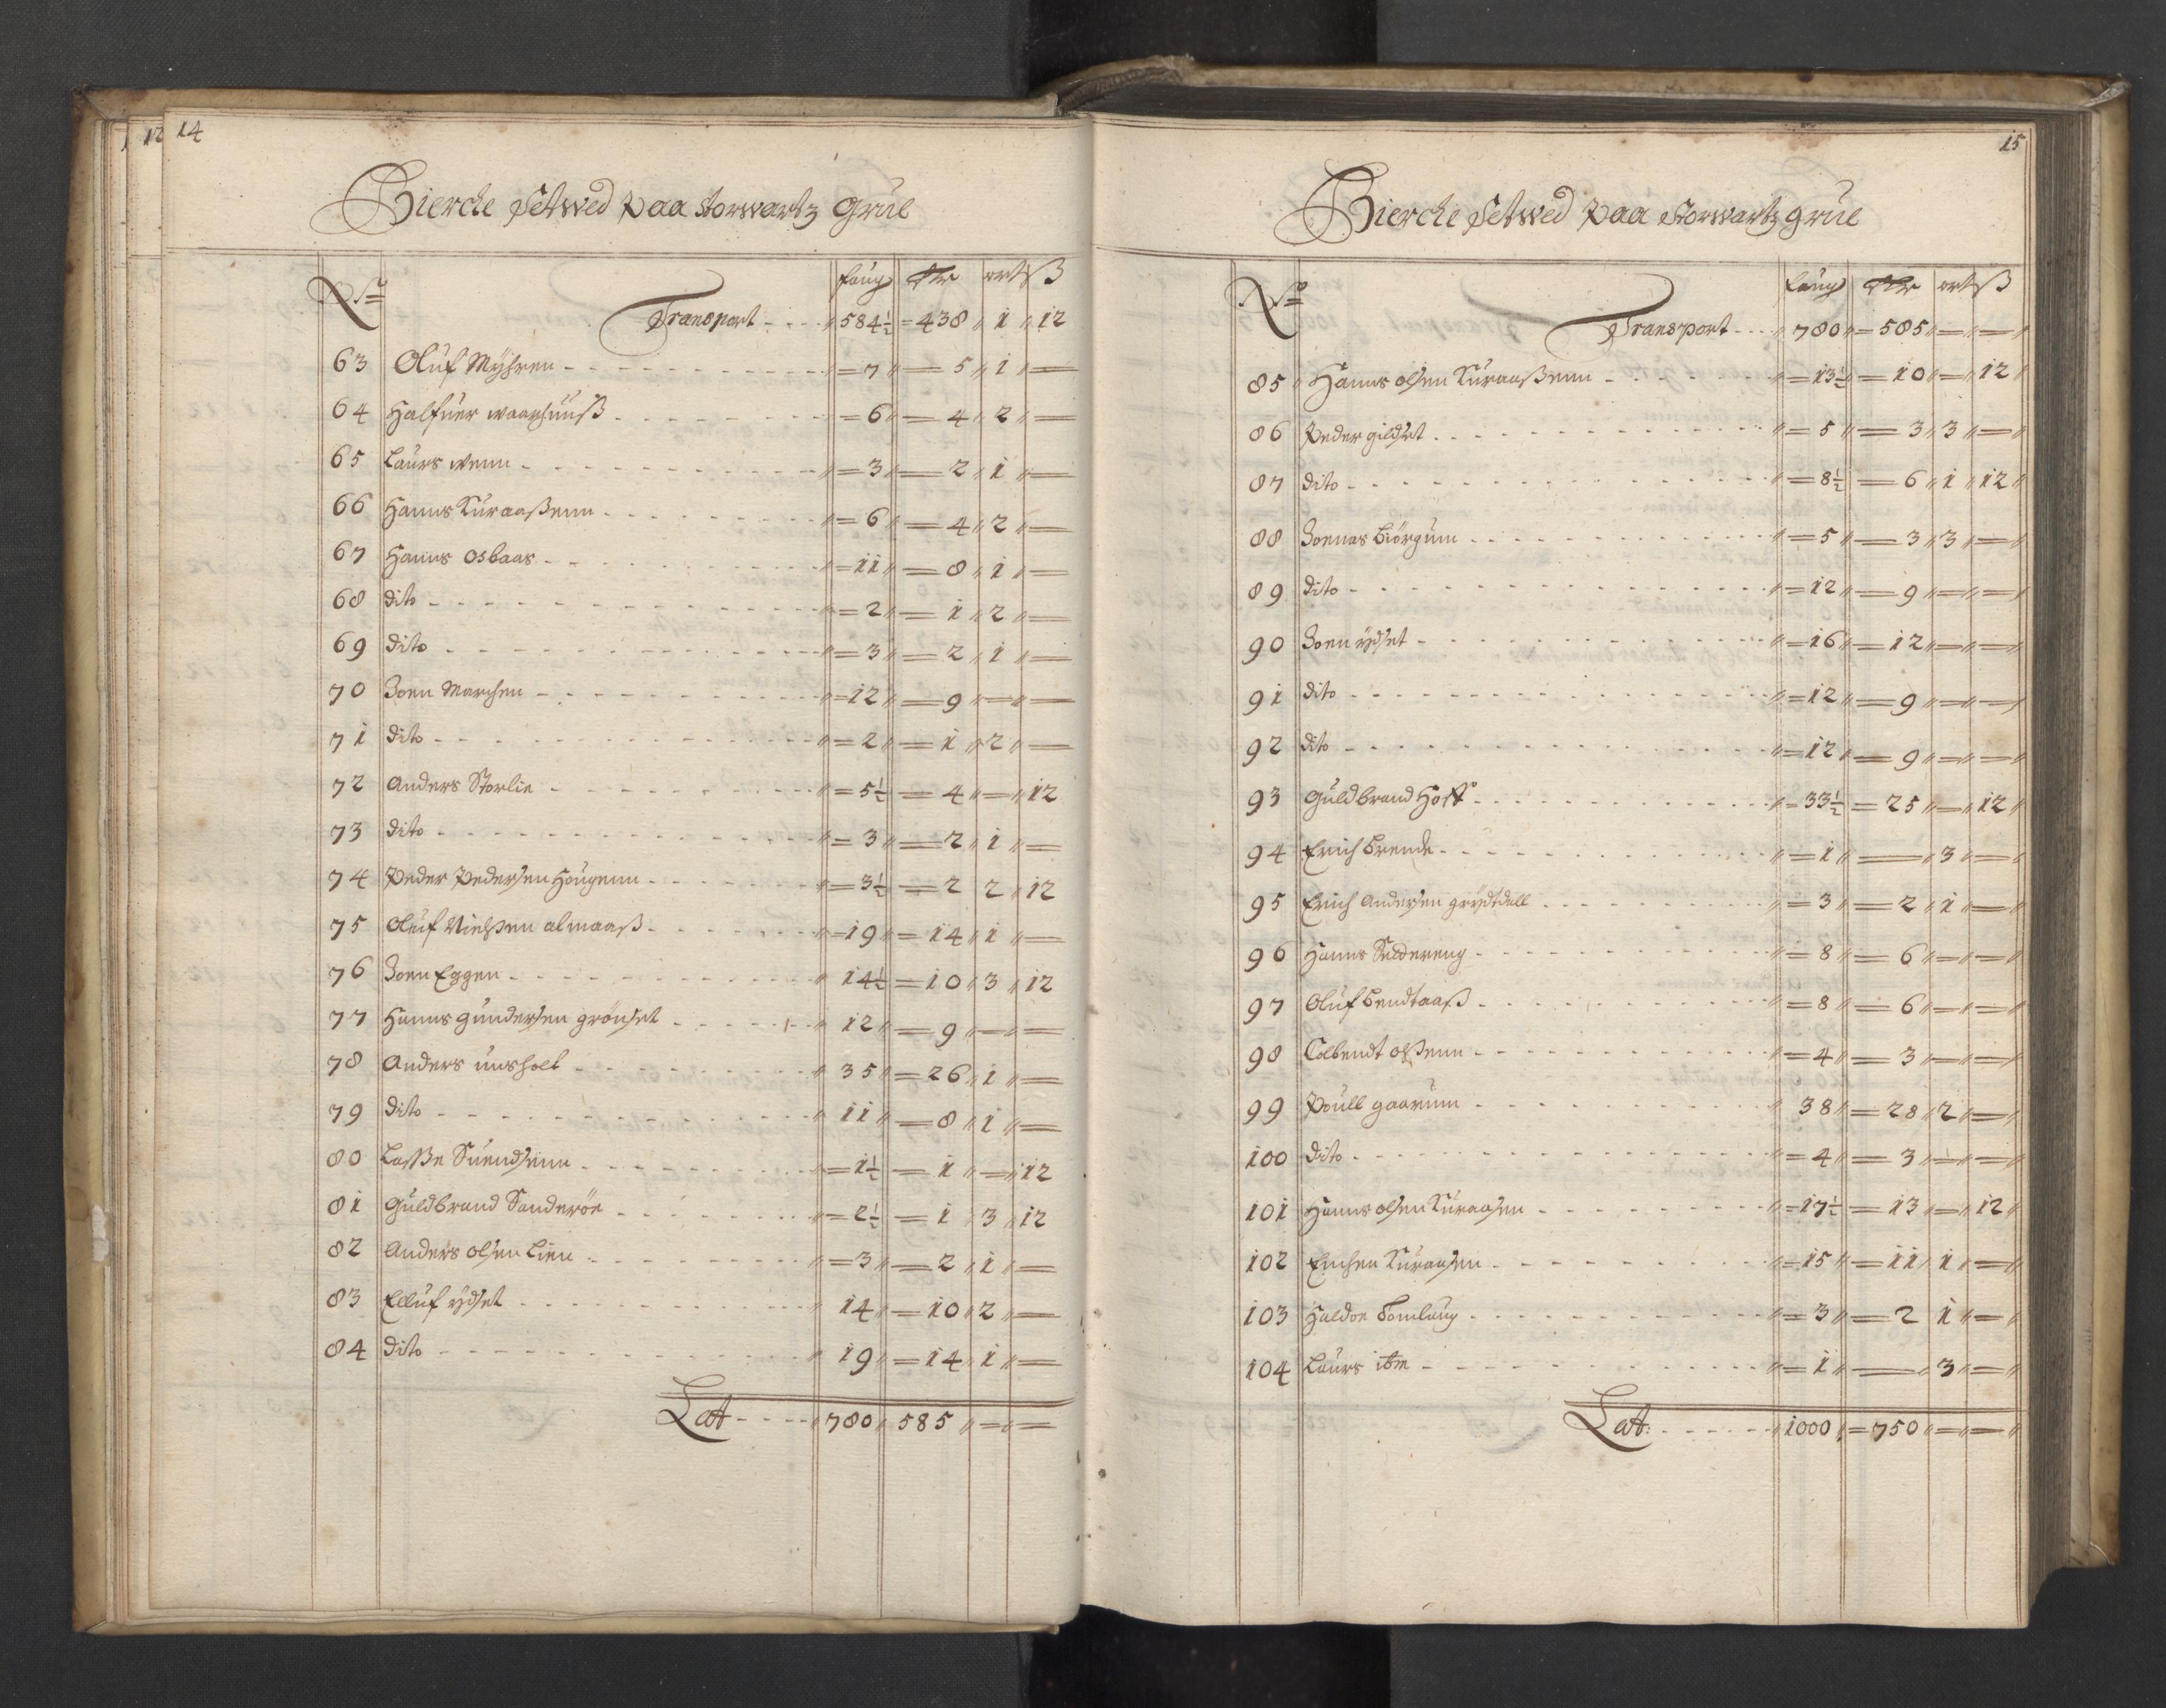 12 14
Bierche Setwed paa Storwartz grue
No faug Rdr ort ß
Transport - - - 584½ = 438 " 1 " 12
63 Oluf Mÿhren - - - = 7 = 5 " 1 " =
64 Halfuer waarhuuß - - - = 6 = 4 " 2 " =
65 Laurs wenn - - - = 3 = 2 " 1 " =
66 Hanns Kuraaßenn - - - = 6 = 4 " 2 " =
67 Hanns Osbaas - - - = 11 = 8 " 1 " =
68 dito - - - = 2 = 1 " 2 " =
69 dito - - - = 3 = 2 " 1 " =
70 Joen Marchen - - - = 12 = 9 " = " =
71 dito - - - = 2 = 1 " 2 " =
72 Anders Storlie - - - = 5½ = 4 " = " 12
73 dito - - - = 3 = 2 " 1 " =
74 Peder Pedersen Hougenn - - - = 3½ = 2 2 " 12
75 Oluf Nielßen almaaß - - - = 19 = 14 " 1 " =
76 Joen Eggen - - - 14½ = 10 " 3 " 12
77 Hanns gundersen grönset - - - 12 = 9 " = " =
78 Anders unsholt - - - 35 = 26 " 1 " =
79 dito - - - 11 = 8 " 1 " =
80 Laße Suendsenn - - - = 1½ = 1 " = " 12
81 Guldbrand Sanderöe - - - = 2½ = 1 " 3 " 12
82 Anders olsen Lien - - - = 3 = 2 " 1 " =
83 Elluf ÿdset - - - 14 = 10 " 2 " =
84 dito - - - 19 = 14 " 1 " =
Lat - - - 780 " 585 " = " =
15
Bierche Setwed Paa Storwartz grue
No faug Rdr ort ß
Transport - - - 780 = 585 " = " =
85 Hanns olsen Kuraaßenn - - - = 13½ = 10 " = " 12
86 Peder gildset - - - = 5 = 3 " 3 " =
87 dito - - - = 8½ = 6 " 1 " 12
88 Joenas Biörgum - - - = 5 = 3 " 3 " =
89 dito - - - = 12 = 9 " = " =
90 Joen ÿdset - - - = 16 = 12 " = " =
91 dito - - - = 12 = 9 " = " =
92 dito - - - = 12 = 9 " = " =
93 Guldbrand Hoff - - - = 33½ = 25 " = " 12
94 Erich Brende - - - = 1 = " 3 " =
95 Erich Andersen grÿtdall - - - = 3 = 2 " 1 " =
96 Hanns - - - = 8 = 6 " = " =
97 Oluf bendtaaß - - - = 8 = 6 " = " =
98 Colbendt olßenn - - - = 4 = 3 " = " =
99 Poull gaarum - - - 38 = 28 " 2 " =
100 dito - - - = 4 = 3 " = " =
101 Hanns olsen Kuraasen - - - = 17½ = 13 " = " 12
102 Kuraasen - - - = 15 = 11 " 1 " =
103 Haldoe - - - = 3 = 2 1 " =
104 Laurs ibm - - - = 1 = " 3 " =
Lat - - - 1000 = 750 " = " =